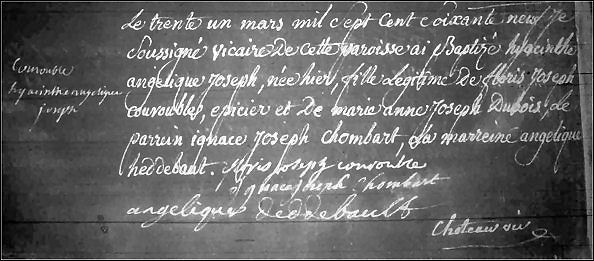 Le trente un mars mil cept Cent coixante neuf Je
Soussigné vicaire De Cette paroisse ai Baptizé hyacinthe
angelique Joseph, née hier, fille Légitime De floris Joseph
couvouble, epicier et De marie anne Joseph Dubois, Le
Parrein ignace Joseph Chombart, La marreine angelique
heddebaut. floris Joseph couvouble
ignace Joseph Chombart
angelique heddebault
Choteau vic
Couvouble
hyacinthe angelique
joseph